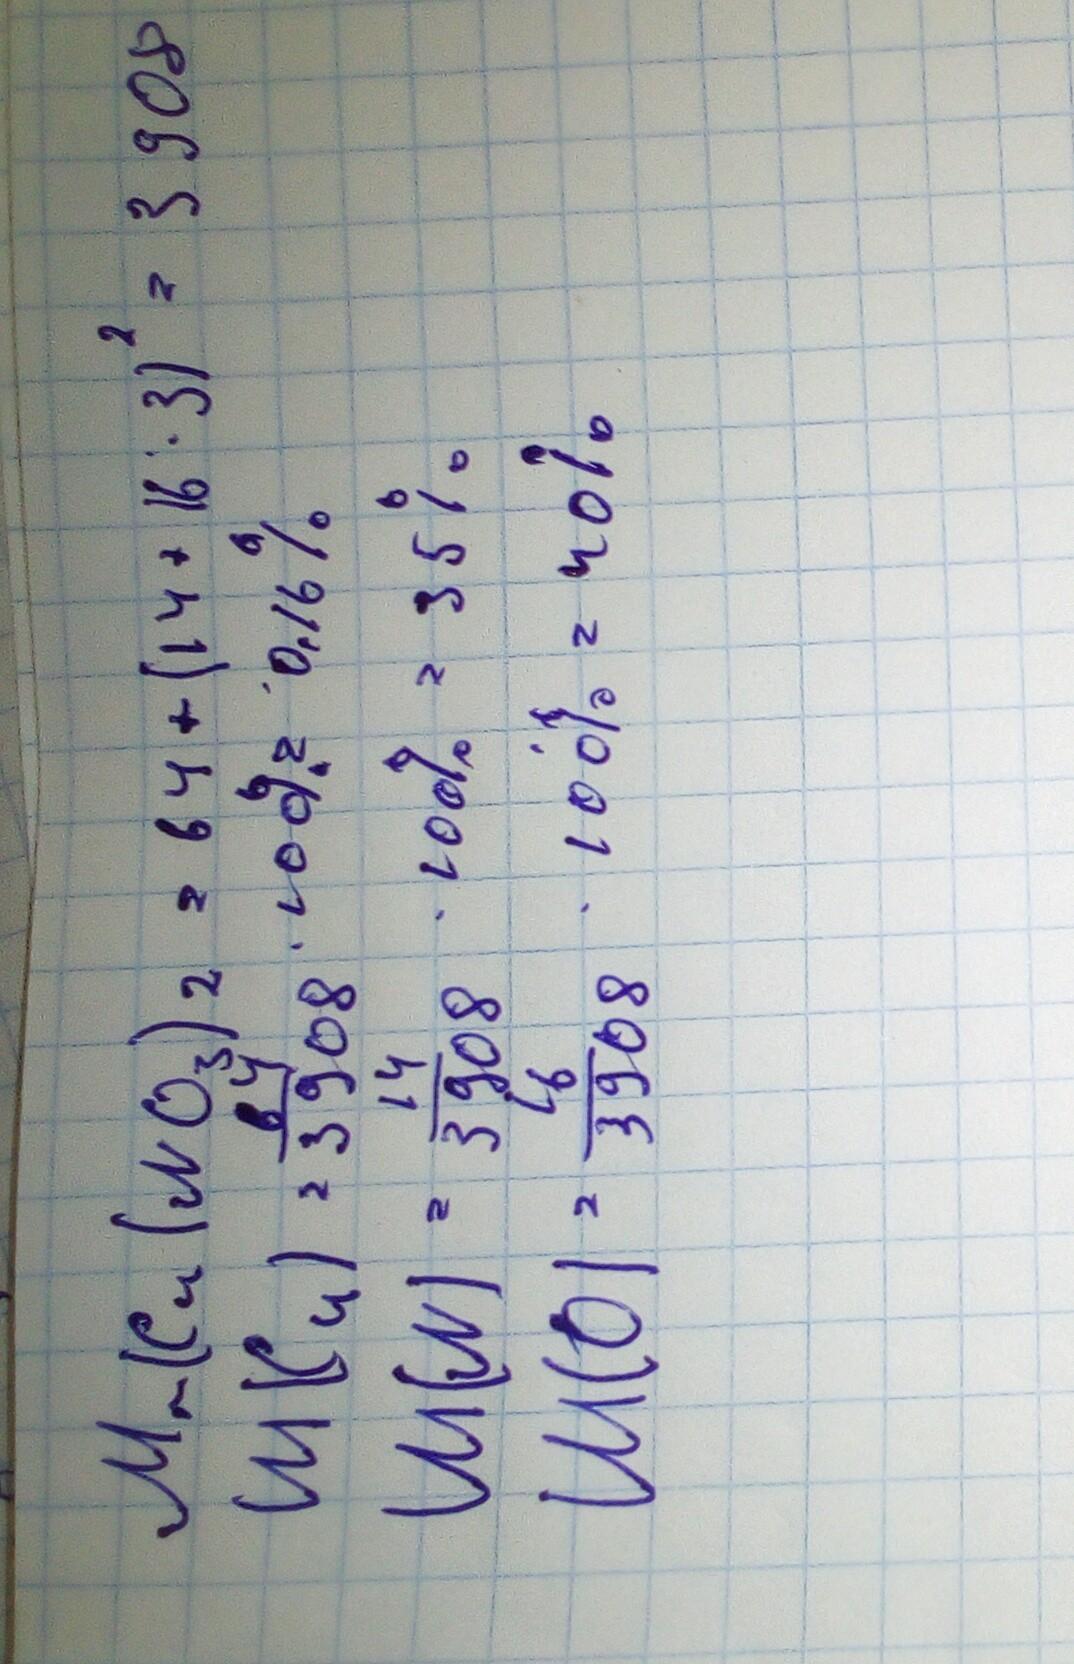 Mr(Cu(NO3)2 = 64+(14+16·3)² = 3908
W(Cu) = 64/3908 · 100% = 0,16%
W(N) = 14/3908 · 100% = 35%
W(O) = 16/3908 · 100% = 40%